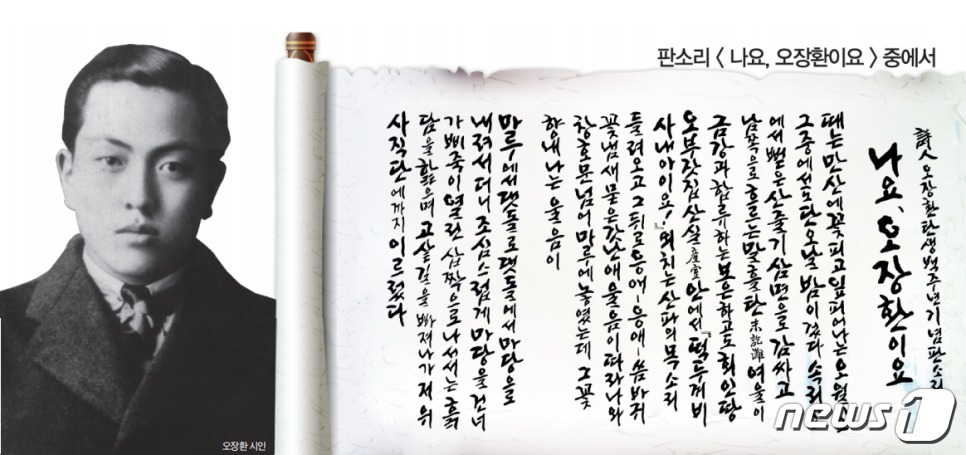 판소리 < 나요, 오장환이요 > 중에서
詩人 오장환 탄생 백주년 기념 판소리
나요, 오장환이요
때는 만산에 꽃피고 잎 피어나는 오월
그중에서도 단오날 밤이 깊다 속리
에서 뻗은 산줄기 삼면으로 감싸고
남북으로 흐르는 말흘탄 末訖灘 여울이
금강과 합류하는 보은하고도 회인땅
오부잣집 산실 産室 안에서 『떡두꺼비
사내아이요!』 외치는 산파의 목소리
들려오고 그 뒤로 응애- 응애- 씀바귀
꽃냄새 묻은 갓난애 울음이 따라나와
창호문 넘어 마루에 놓였는데 그 꽃
향내 나는 울음이
말루에서 댓돌로 댓돌에서 마당으로
내려서더니 조심스럽게 마당을 건너
가 삐죽이 열린 삽짝으로 나서서는 흙
담을 핥으며 고샅길을 빠져나가 저 위
사직단에까지 이르렀다
오장환 시인
news1